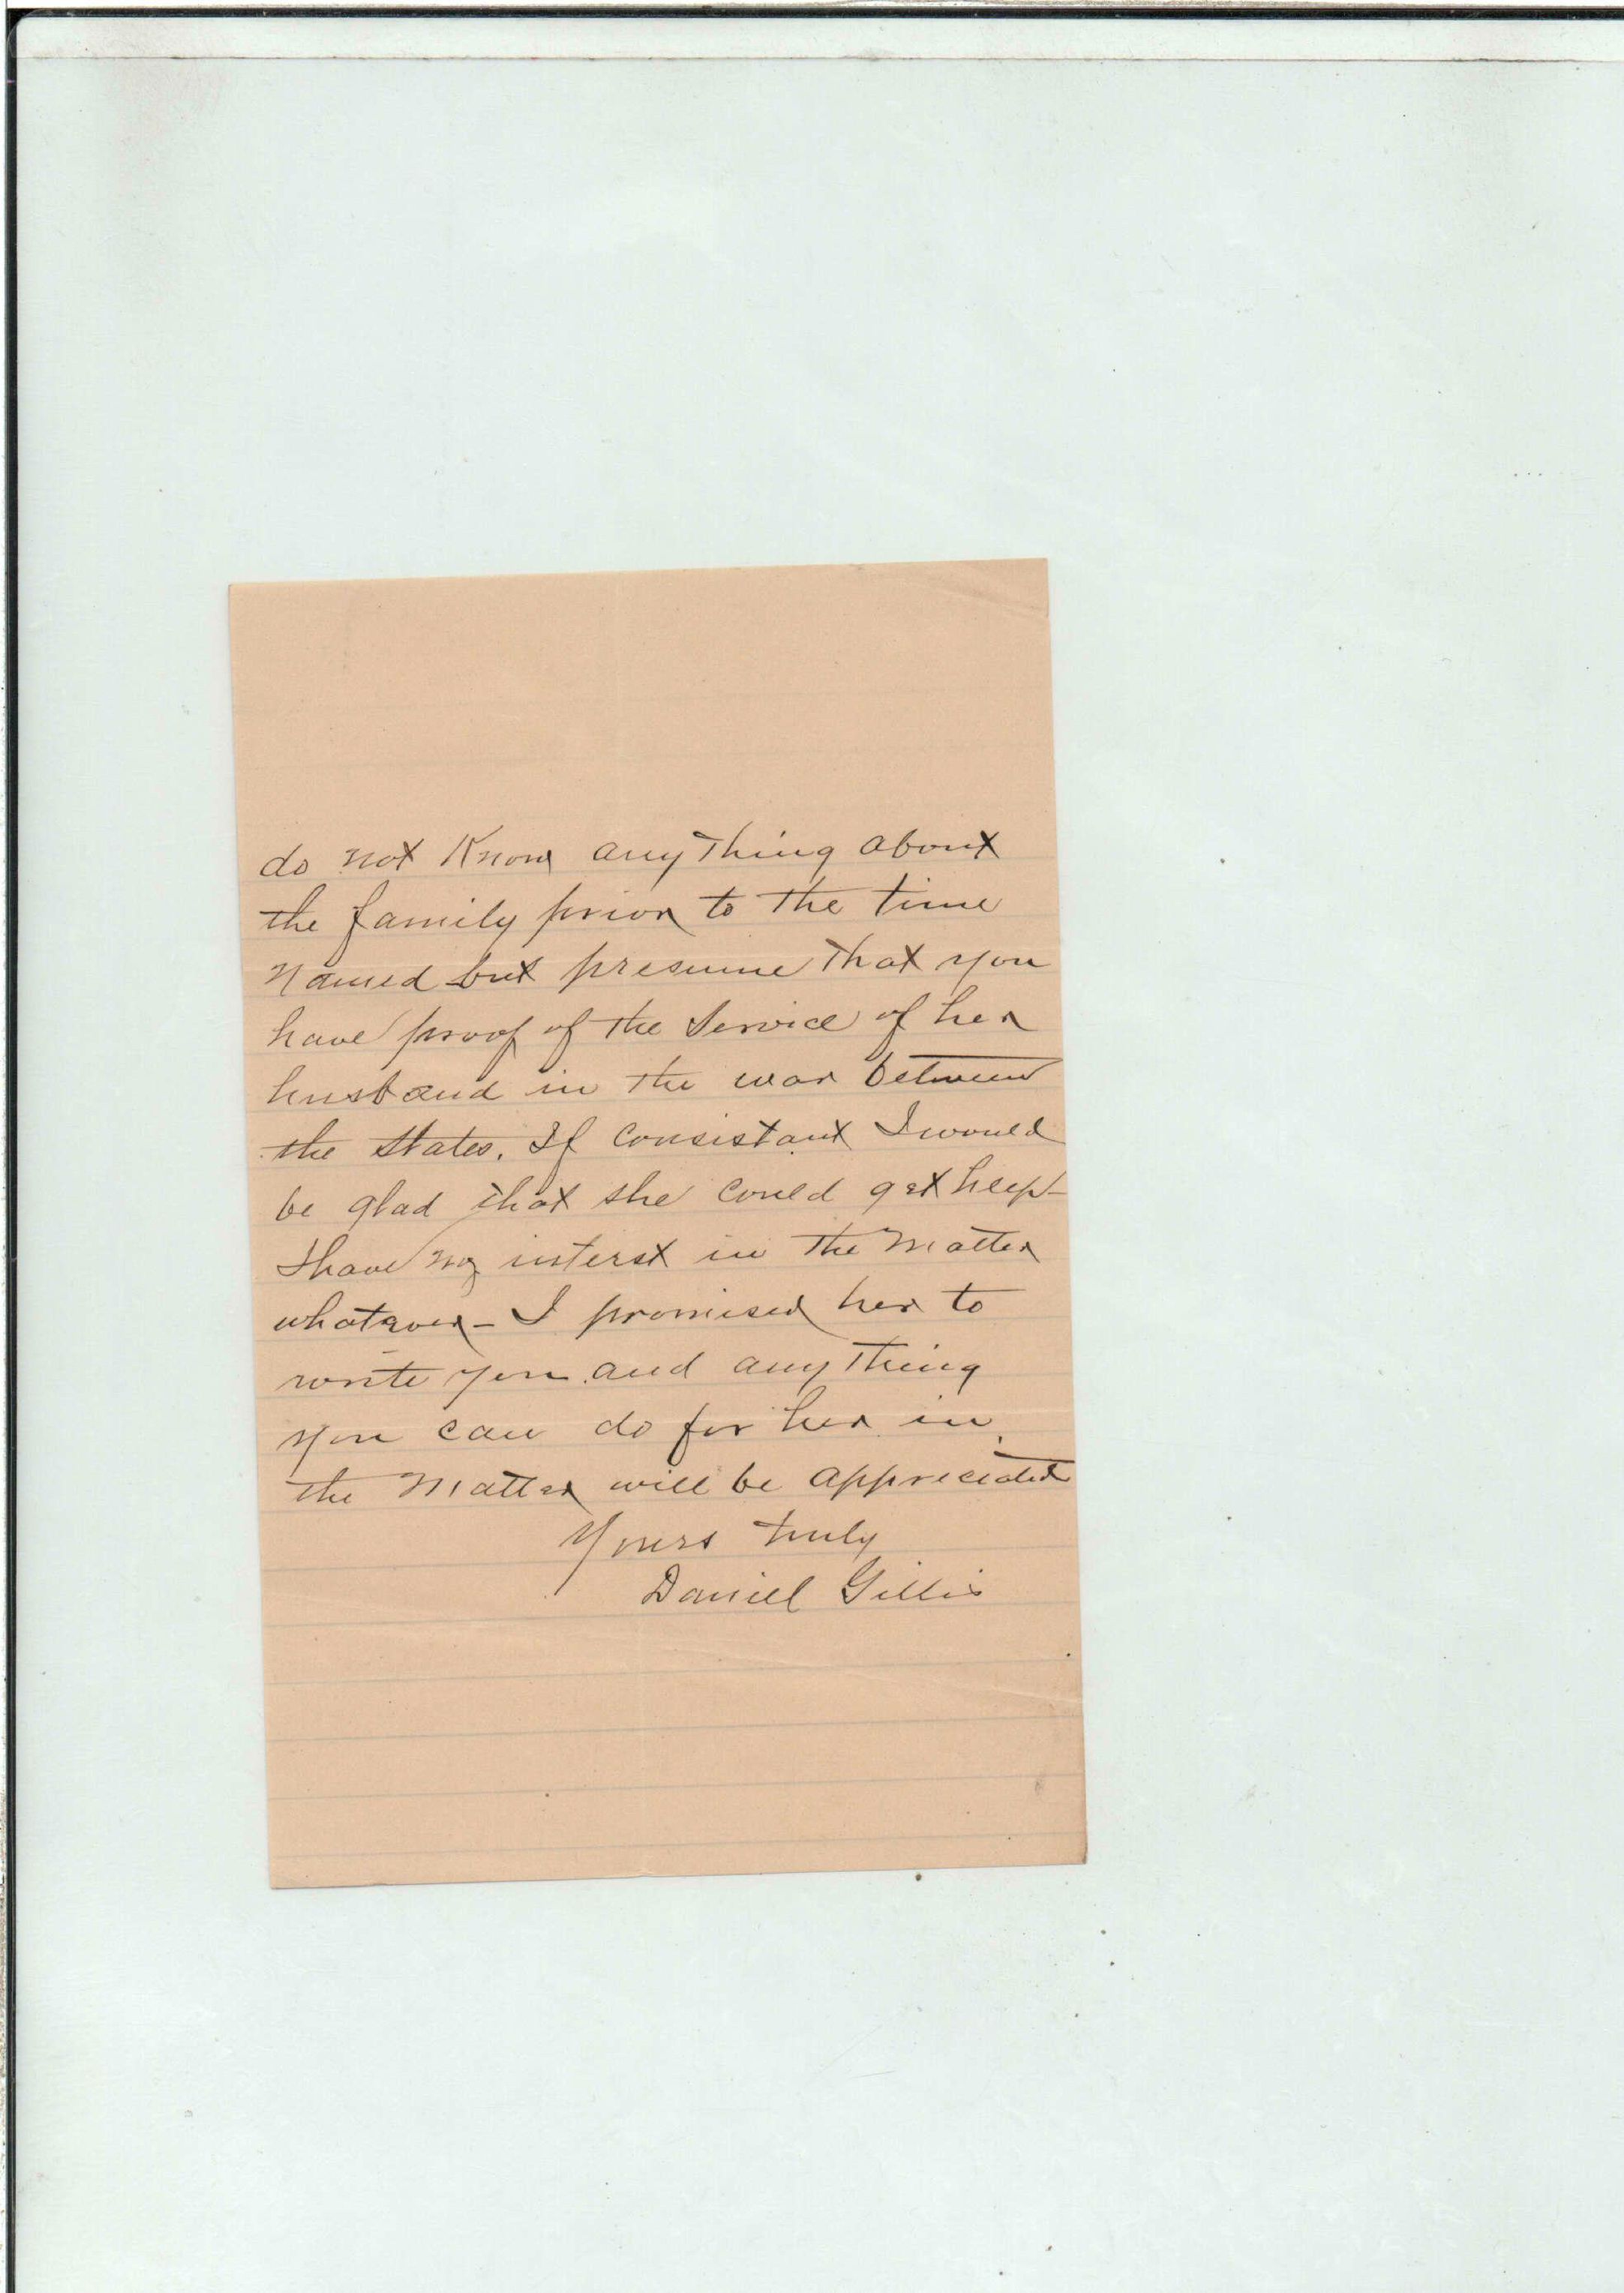 do not Know any Thing about
the family prior to The time
Named but presume That you
have proof of The Service of her
husband in The war between
the States. If Consistant I would
be glad that she could get help-
I have no interst in The Matter
whatever - I promised her to
write you and any Thing
you can do for her in
the Matter will be appreciated
Yours truly
Daniel Gillis